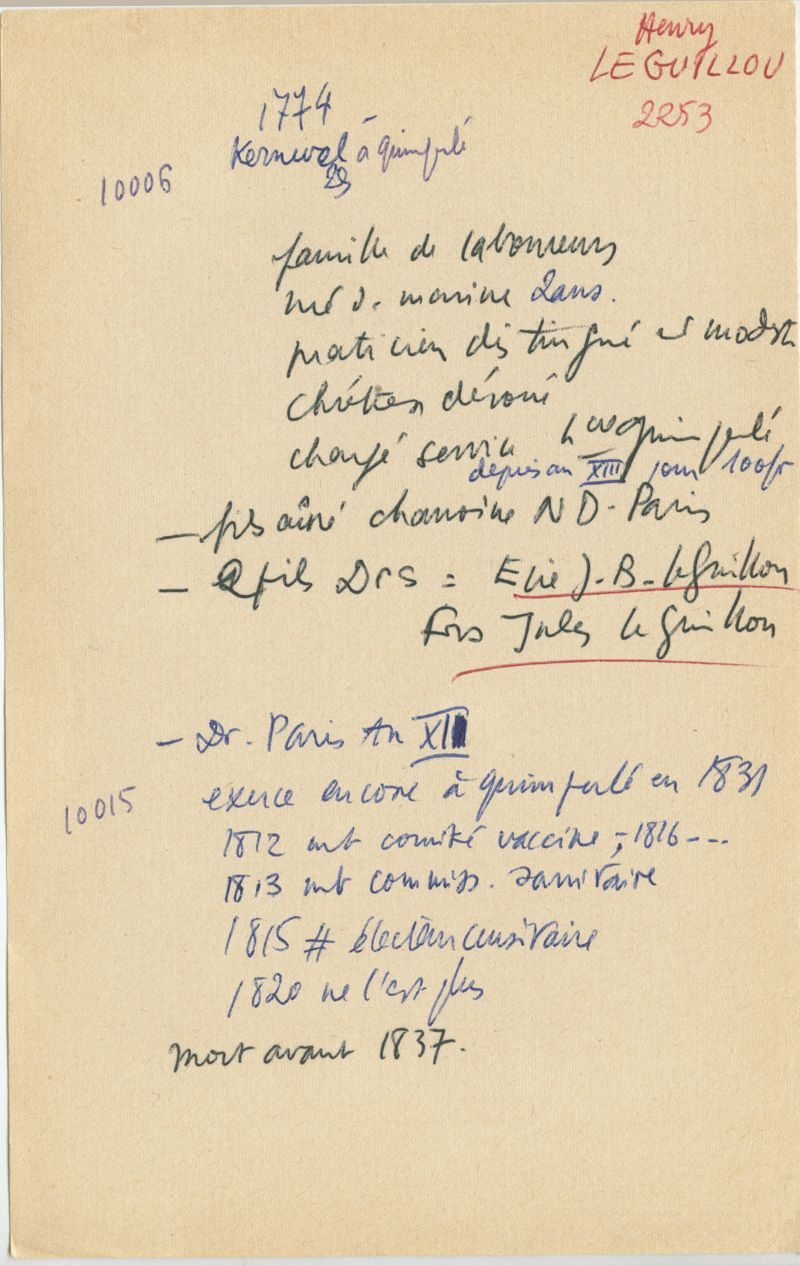 Henry
LE GUILLOU
2253
1774
Kerneval à quimperlé
29
10006
famille de laboureurs
méd. marine 2 ans.
praticien distingué et modeste
chrétien dévoué
chargé service quimperlé
depuis an XIII pour 100fr
— fils aîné chanoine ND. Paris
— 2 fils Drs = Elie J-B- le Guillou
Frs Jules le Guillou
— Dr. Paris An XII
exerce encore à quimperlé en 1831
10015
1812 mb comité vaccine ; 1816 ---
1813 mb commiss. sanitaire
1815 # électeur censitaire
1820 ne l'est plus
mort avant 1837.